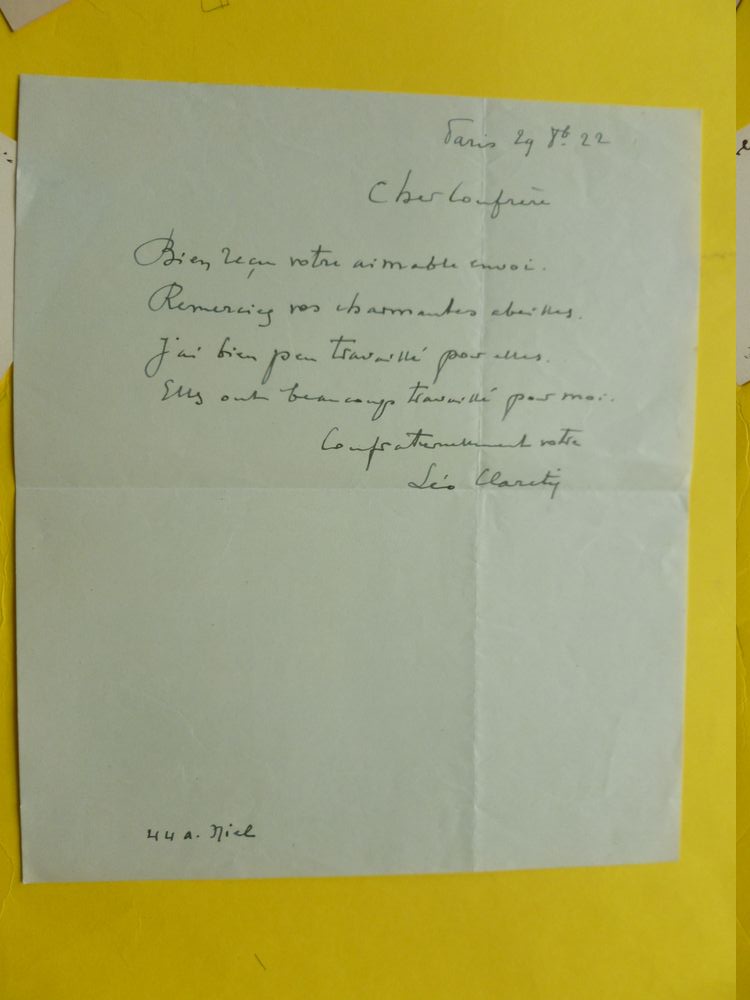 Paris 29 8b. 22
Cher Confrère
Bien reçu votre aimable envoi.
Remerciez vos charmantes abeilles.
J'ai bien peu travaillé pour elles.
Elles ont beaucoup travaillé pour moi.
Confraternellement votre
Léo Claretie
44 a. Niel